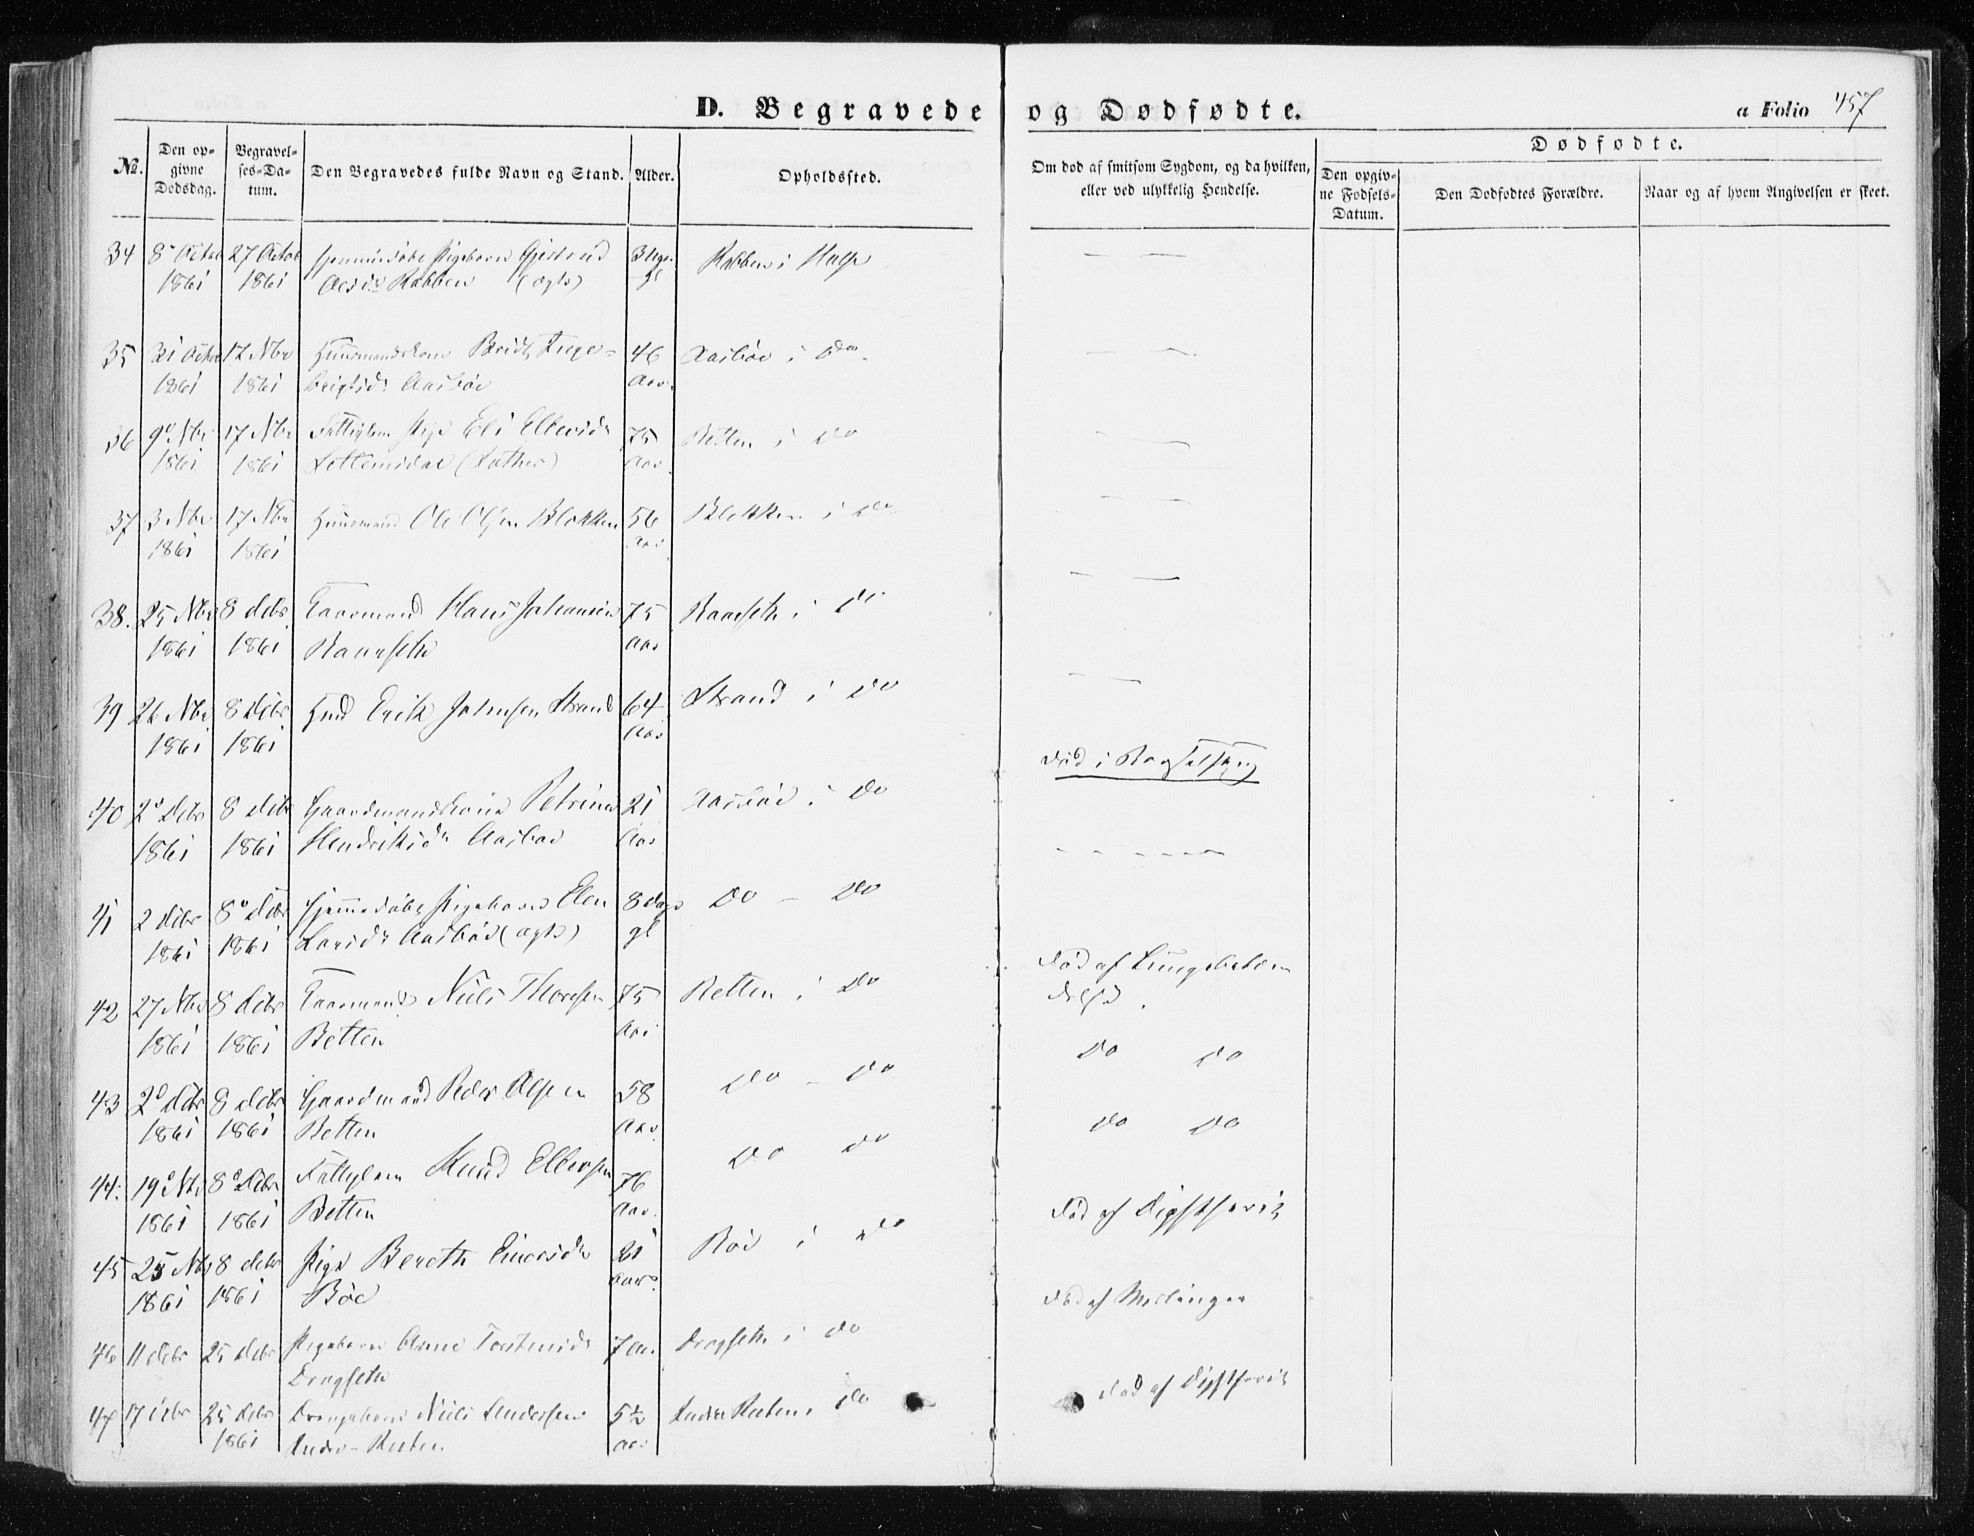 D. Begravede og Dødfødte.
a Folio 457
No.
Den op-
givne
Dødsdag.
Begravel-
ses-Da-
tum.
Den Begravedes fulde Navn og Stand.
Alder.
Opholdssted.
Om død af smitsom Sygdom, og da hvilken,
eller ved ulykkelig Hendelse.
Dødfødte.
Den opgiv-
ne Fødsels-
Datum.
Den Dødfødtes Forældre.
Naar og af hvem Angivelsen er skeet.
34 8 Octob 27 Octob Hjemmedøbt Pigebarn Gjertrud
1861 1861 Rabben (ægte) gl
Rabben i
35 31 Octob 17 Nbr Huusmandskone Inge-
46
1861 1861 brigtsdr Aasbøe Aar
Aasbøe i Do
36 9 Nbr 17 Nbr Fattiglem Pige Eli Ellevsdr 75
1861 1861 Aar
Betten i Do
37 3 Nbr 17 Nbr Huusmand Ole Olsen Blokken 56
1861 1861 Aar
i Do
38. 25 Nbr 8 Decbr Kaarmand Hans Johansen 75
1861 1861 Aar
i Do
39 26 Nbr 8 Decbr Hmd Erik Johnsen Strand 64
1861 1861 Aar
Strand i Do
40 2 Decbr 8 Decbr Gaardmandskone Petrine 21
1861 1861 Hendriksdr Aasbøe Aar
Aasbøe i Do
Død i Barselseng
41 2 Decbr 8 Decbr Hjemmedøbt Pigebarn Elen 8 Dage
1861 1861 Larsdr Aasbøe (ægte) gl
Do - Do
42 27 Nbr 8 Decbr Kaarmand Niels Thoresen 75
1861 1861 Betten Aar
Betten i Do
Død af Lungebetæn
delse.
43 2 Decbr 8 Decbr Gaardmand Peder Olsen 58
1861 1861 Betten Aar
Do - Do
Do Do
44. 19 Nbr 8 Decbr Fattiglem Knud Ellevsen 76
1861 1861 Betten Aar.
Do Do
Do Do
45 25 Nbr 8 Decbr Pige Bereth Einersdr 21
1861 1861 Bøe Aar
Bøe i Do
Død af Diphtherit
46 11 Decbr 25 Decbr Pigebarn Anne Torstensdr 7 Aar
Dragseth
Dragseth i Do
Død af Meslinger
47 17 Decbr 25 Decbr Drengebarn Niels Andersen 5½
1861 Indre-Reiten Aar
Indre Reiten i Do
Død af Diphtherit